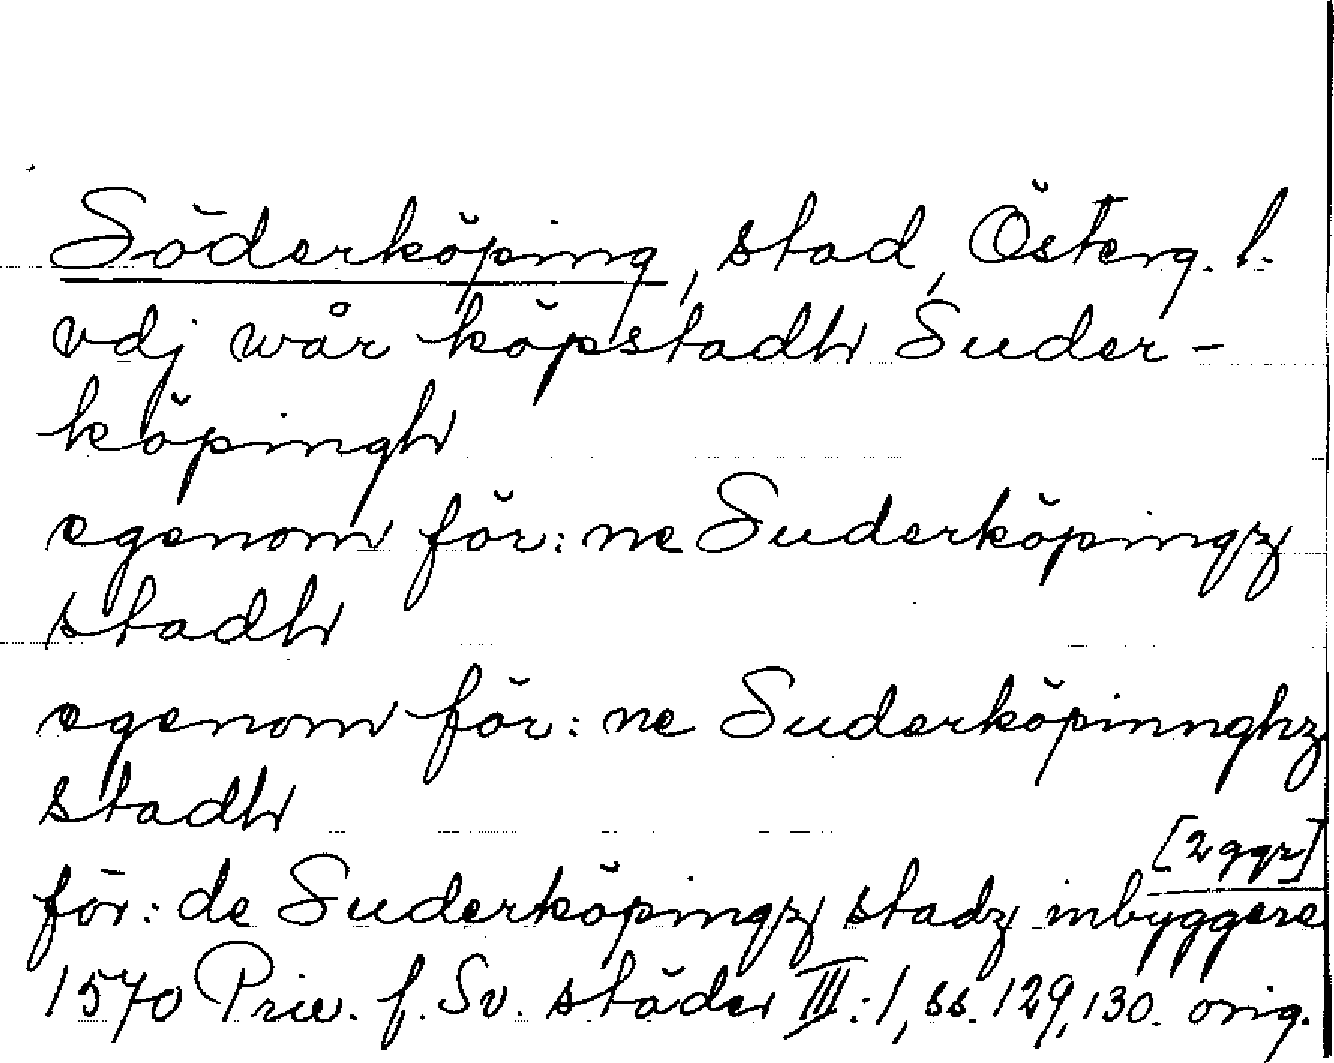 Söderköping, stad, Österg. l.
vdj wår köpstadh Suder-
köpingh
egenom för:ne Suderköpingz
stadh
egenom för:ne Suderköpinnghz
stadh
[2 ggr]
för:de Suderköpingz stadz inbyggere
1570 Priv. f. Sv. städer III:1, ss. 129, 130. orig.